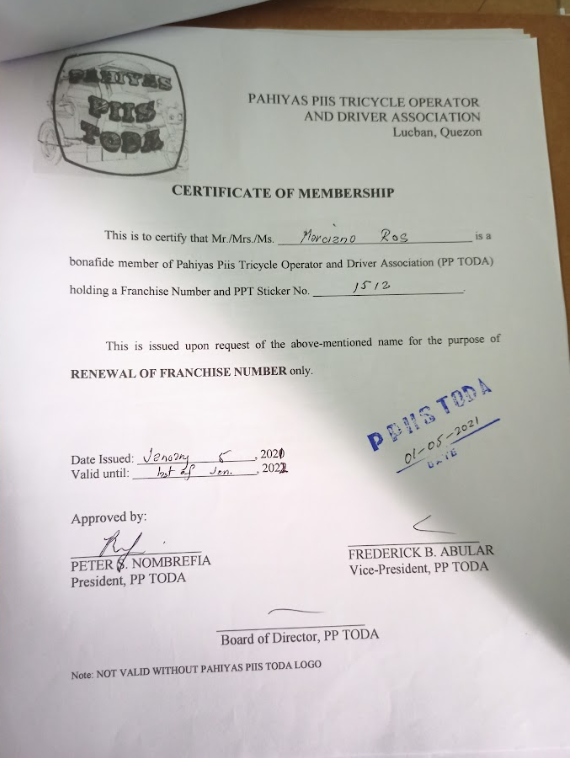 PAHIYAS
PIIS
TODA
PAHIYAS PIIS TRICYCLE OPERATOR
AND DRIVER ASSOCIATION
Lucban, Quezon
CERTIFICATE OF MEMBERSHIP
This is to certify that Mr./Mrs./Ms. Marciano Ros is a
bonafide member of Pahiyas Piis Tricycle Operator and Driver Association (PP TODA)
holding a Franchise Number and PPT Sticker No. 1512
This is issued upon request of the above-mentioned name for the purpose of
RENEWAL OF FRANCHISE NUMBER only.
PPIIS TODA
01-05-2021
DATE
Date Issued: January 5, 2021
Valid until: of Jan., 2022
Approved by:
PETER S. NOMBREFIA
President, PP TODA
FREDERICK B. ABULAR
Vice-President, PP TODA
Board of Director, PP TODA
Note: NOT VALID WITHOUT PAHIYAS PIIS TODA LOGO